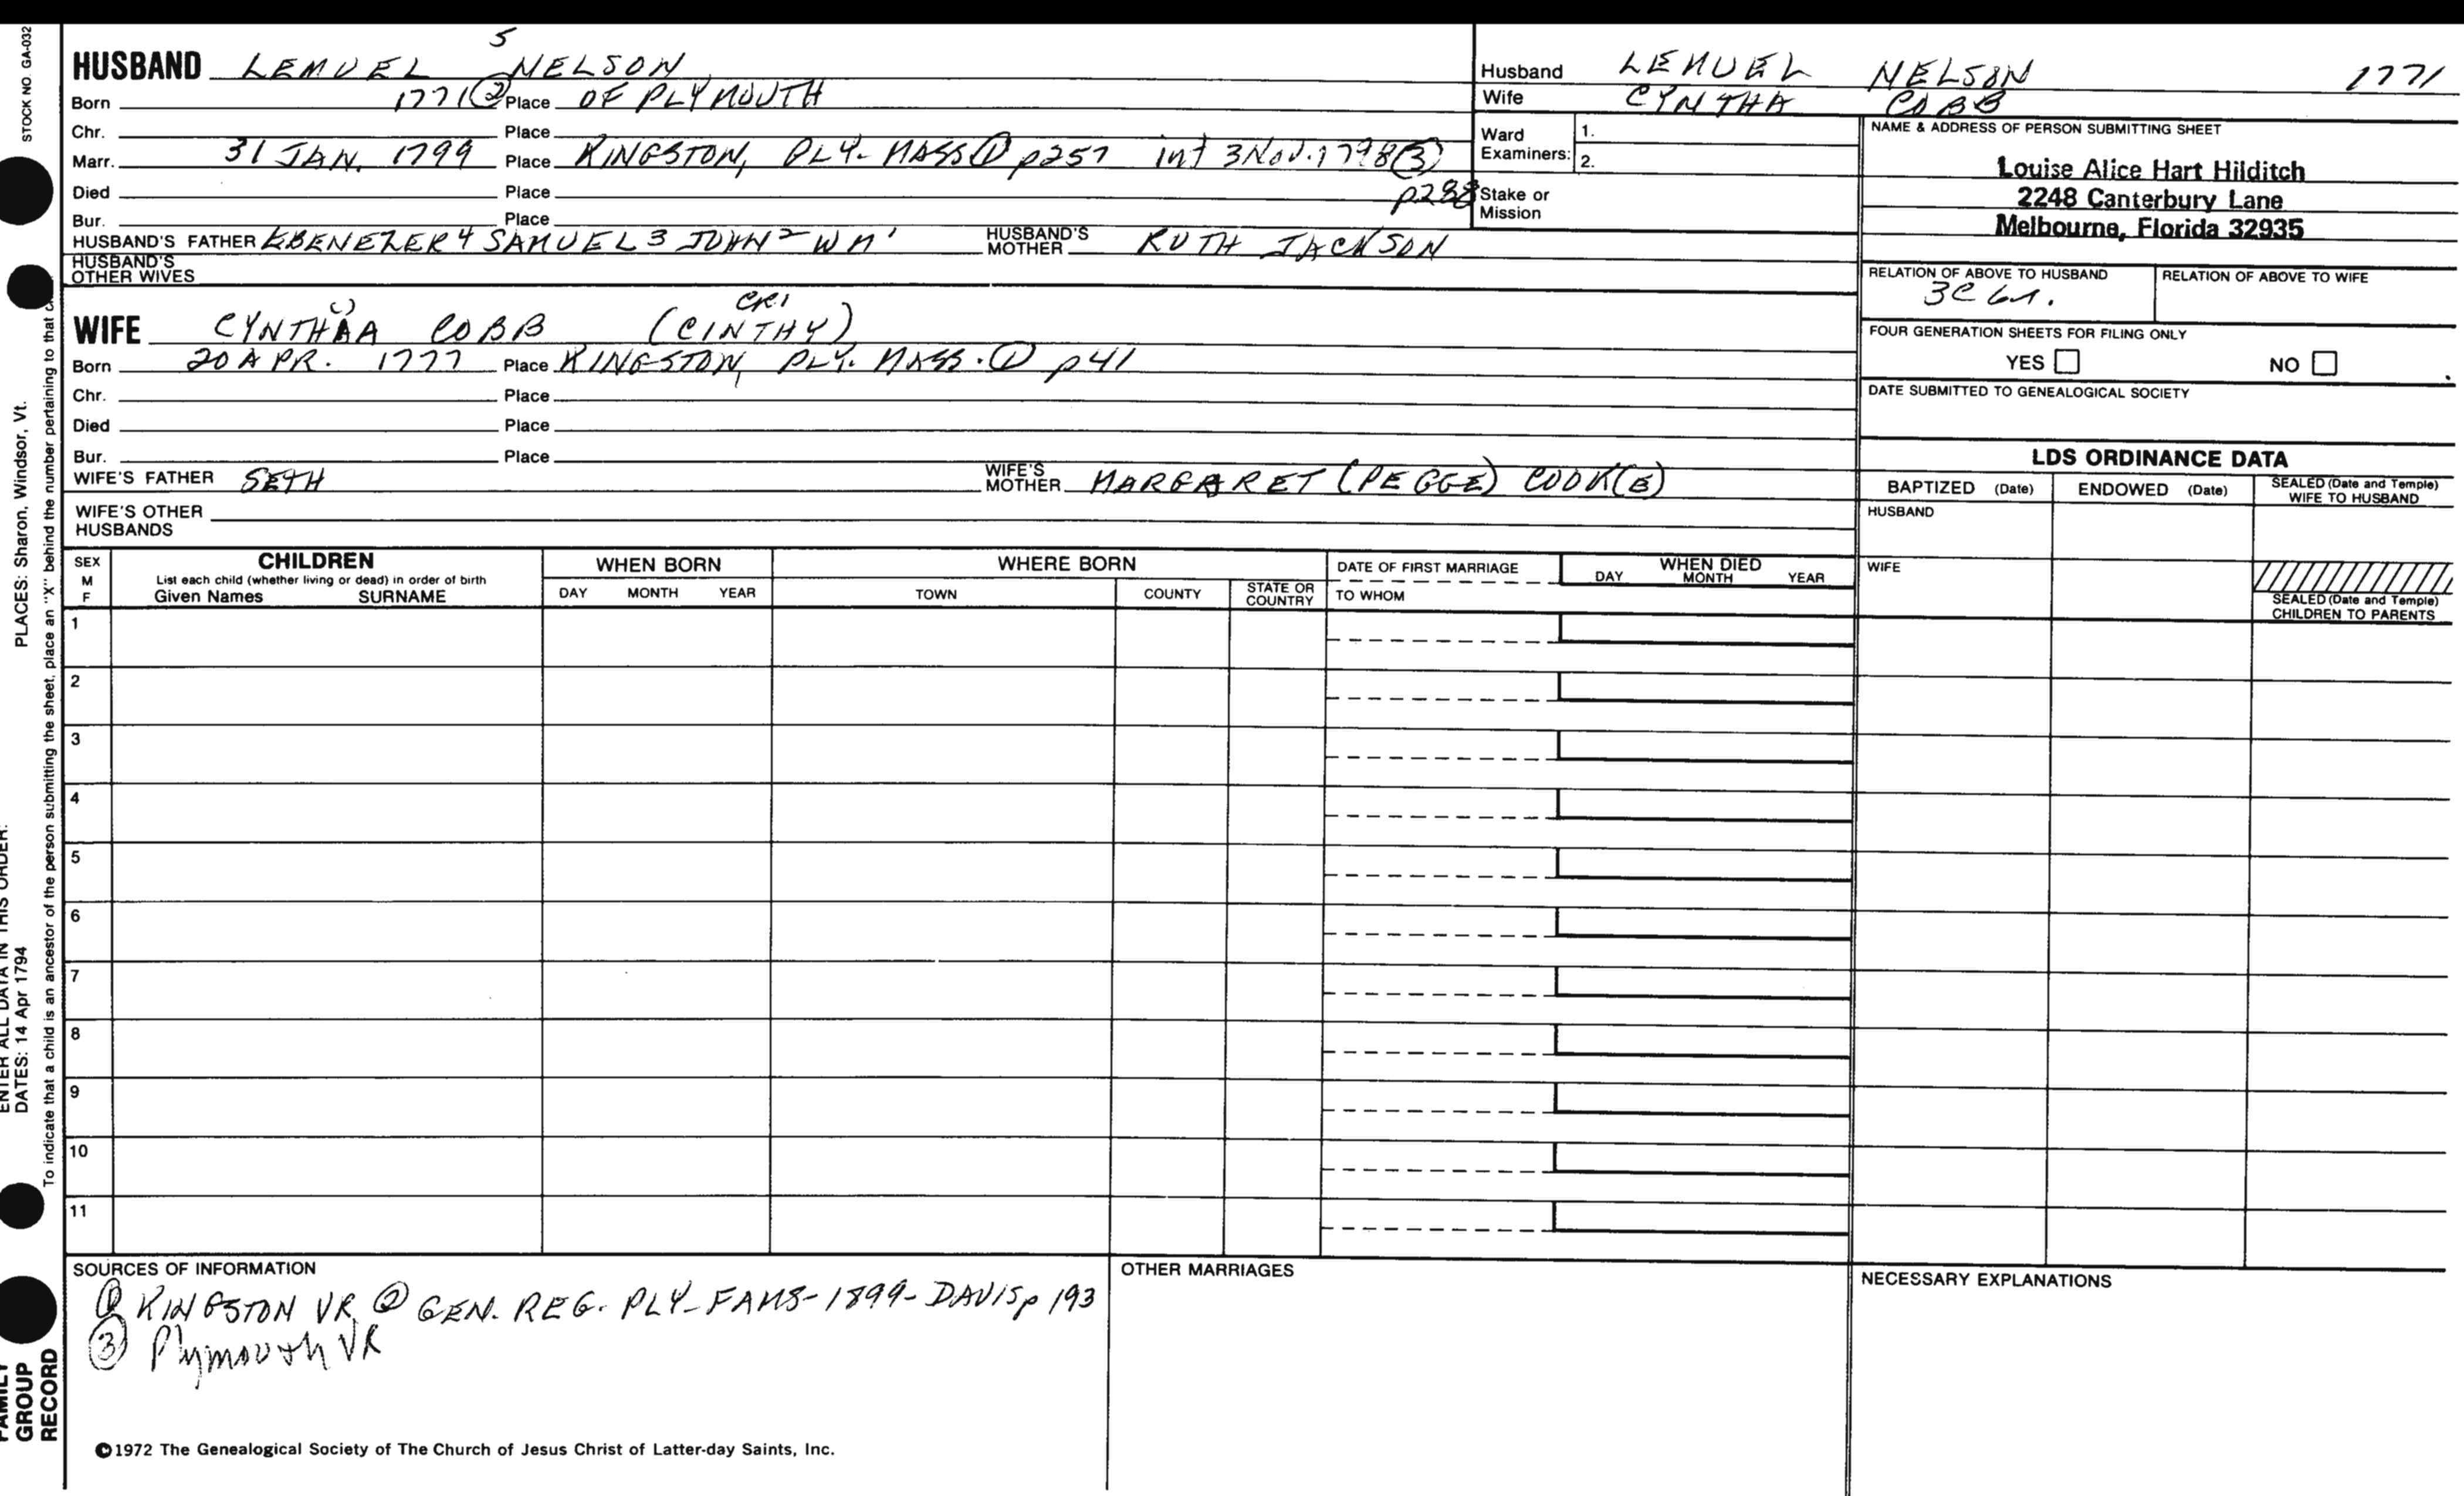 STOCK NO. GA-032
PLACES: Sharon, Windsor, Vt.
ENTER ALL DATA IN THIS ORDER:
DATES: 14 Apr 1794
To indicate that a child is an ancestor of the person submitting the sheet, place an "X" behind the number pertaining to that
FAMILY
GROUP
RECORD
5
HUSBAND LEMUEL NELSON
Born 1771 ② Place OF PLYMOUTH
Chr. Place
Marr. 31 JAN. 1799 Place KINGSTON, PLY. MASS ① p257 int 3 NOV. 1798 ③
p288
Died Place
Bur. Place
HUSBAND'S FATHER EBENEZER 4 SAMUEL 3 JOHN 2 WM 1 HUSBAND'S MOTHER RUTH JACKSON
HUSBAND'S
OTHER WIVES
CR1
WIFE CYNTHA COBB (CINTHY)
Born 20 APR. 1777 Place KINGSTON, PLY. MASS. ① p41
Chr. Place
Died Place
Bur. Place
WIFE'S FATHER SETH WIFE'S MOTHER MARGARET (PEGGE) COOK(E)
WIFE'S OTHER
HUSBANDS
Husband LEMUEL NELSON 1771
Wife CYNTHA COBB
Ward Examiners: 1.
2.
Stake or
Mission
NAME & ADDRESS OF PERSON SUBMITTING SHEET
Louise Alice Hart Hilditch
2248 Canterbury Lane
Melbourne, Florida 32935
RELATION OF ABOVE TO HUSBAND RELATION OF ABOVE TO WIFE
3C
FOUR GENERATION SHEETS FOR FILING ONLY
YES NO
DATE SUBMITTED TO GENEALOGICAL SOCIETY
LDS ORDINANCE DATA
BAPTIZED (Date) ENDOWED (Date) SEALED (Date and Temple) WIFE TO HUSBAND
HUSBAND
WIFE
SEALED (Date and Temple)
CHILDREN TO PARENTS
SEX M F
CHILDREN
List each child (whether living or dead) in order of birth
Given Names SURNAME
WHEN BORN
DAY MONTH YEAR
WHERE BORN
TOWN COUNTY STATE OR COUNTRY
DATE OF FIRST MARRIAGE
TO WHOM
WHEN DIED
DAY MONTH YEAR
1
2
3
4
5
6
7
8
9
10
11
SOURCES OF INFORMATION
① KINGSTON VR ② GEN. REG. PLY. FAMS-1899-DAVIS p 193
③ Plymouth VR
OTHER MARRIAGES
NECESSARY EXPLANATIONS
©1972 The Genealogical Society of The Church of Jesus Christ of Latter-day Saints, Inc.